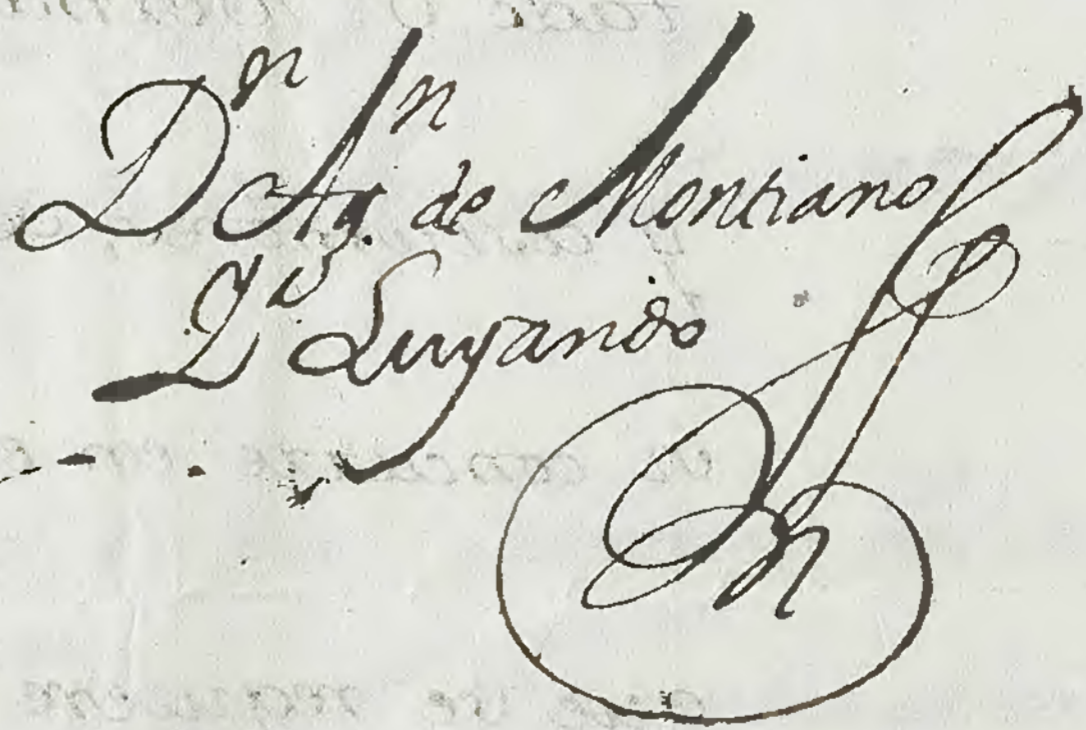 Dn Agn. de Montiano
y Luyando